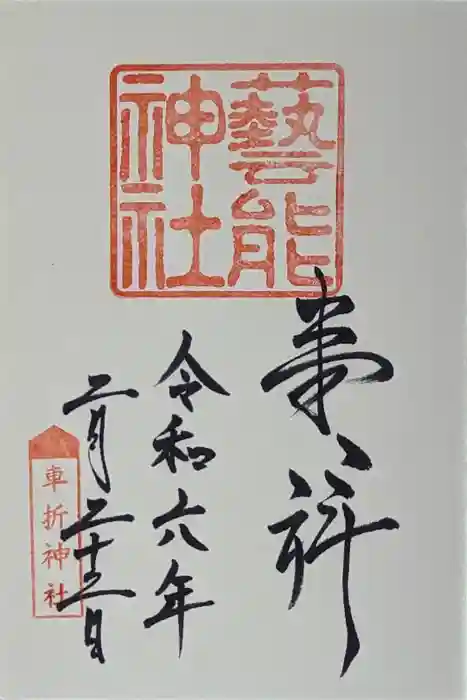 藝能
神社
奉拝
令和六年
二月二十三日
車折神社